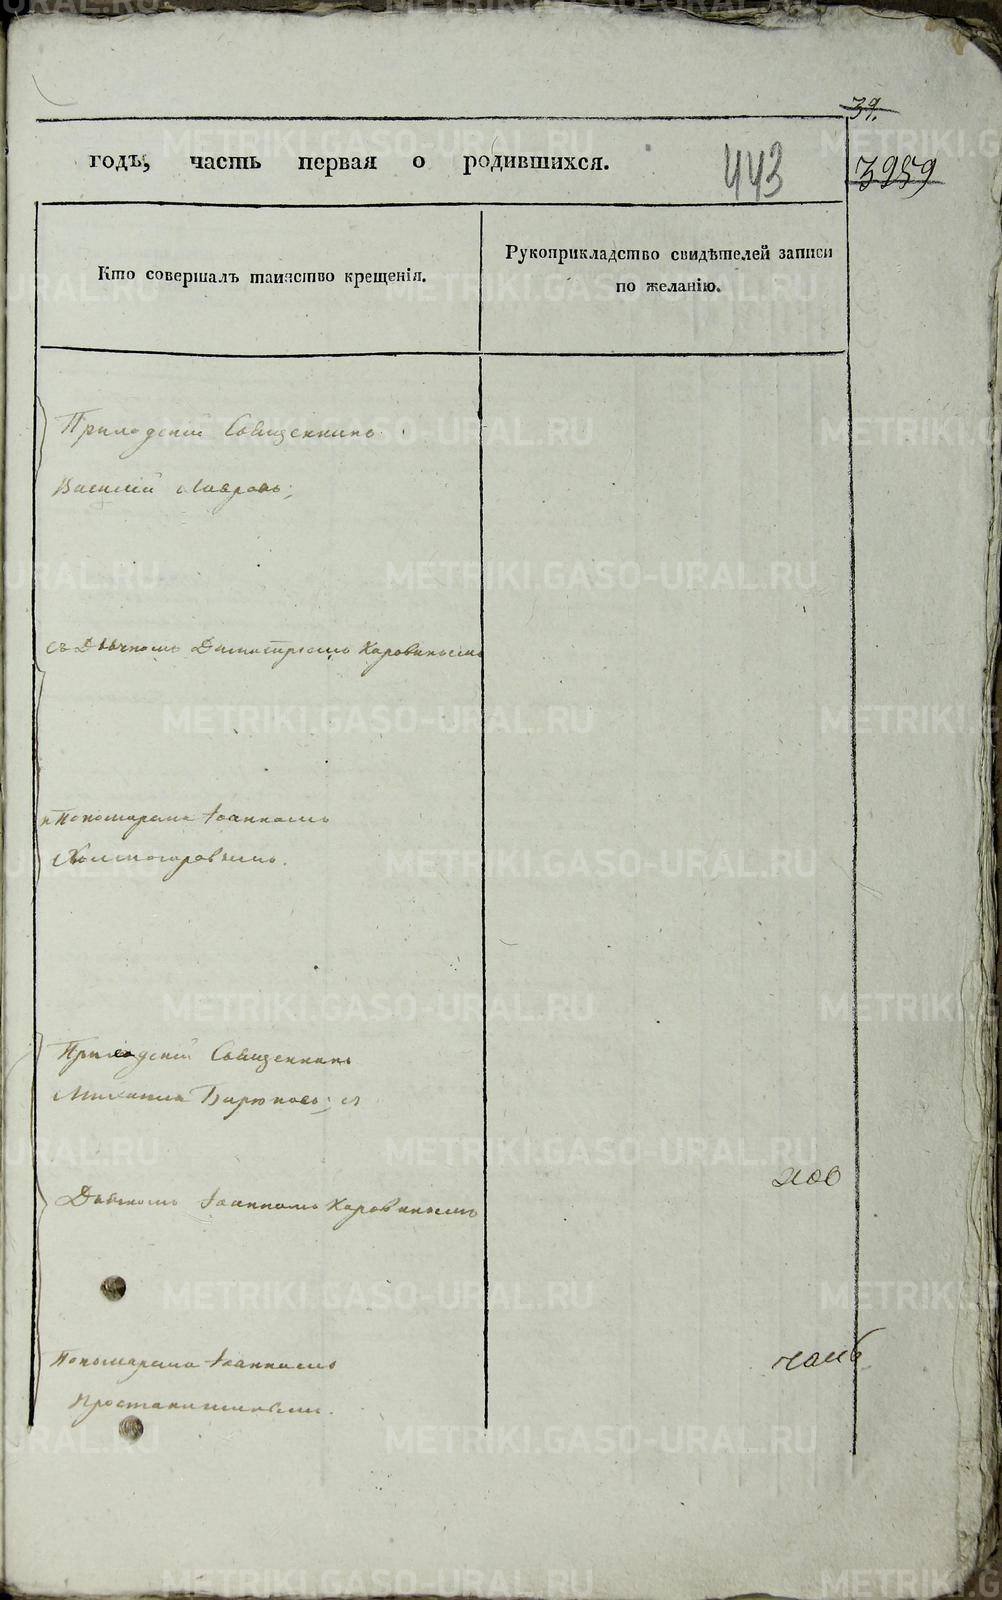 39.
годъ, часть первая о родившихся.
443
3959
Кто совершалъ таинство крещенія.
Рукоприкладство свидѣтелей записи
по желанію.
Приходскій Священникъ
Василій Лавровъ;
съ Дьячкомъ Димитріемъ Коровинымъ
и Пономаремъ Іоанномъ
Холмогоровымъ.
Приходскій Священникъ
Михаилъ Бирюковъ; съ
Дьячкомъ Іоанномъ Коровинымъ
Пономаремъ Іоанномъ
METRIKI.GASO-URAL.RU